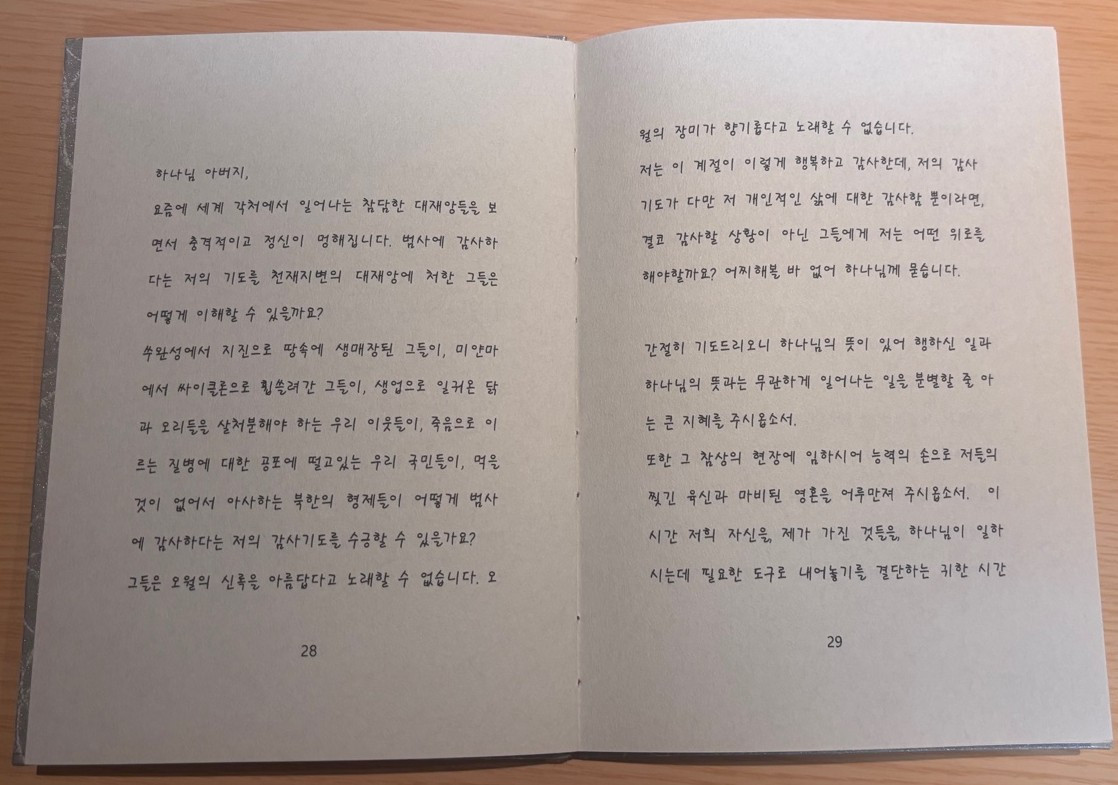 하나님 아버지,
요즘에 세계 각처에서 일어나는 참담한 대재앙들을 보
면서 충격적이고 정신이 멍해집니다. 범사에 감사하
다는 저의 기도를 천재지변의 대재앙에 처한 그들은
어떻게 이해할 수 있을까요?
쓰완성에서 지진으로 땅속에 생매장된 그들이, 미얀마
에서 싸이클론으로 휩쓸려간 그들이, 생업으로 일궈온 닭
과 오리들을 살처분해야 하는 우리 이웃들이, 죽음으로 이
르는 질병에 대한 공포에 떨고있는 우리 국민들이, 먹을
것이 없어서 아사하는 북한의 형제들이 어떻게 범사
에 감사하다는 저의 감사기도를 수긍할 수 있을가요?
그들은 오월의 신록을 아름답다고 노래할 수 없습니다. 오
28
월의 장미가 향기롭다고 노래할 수 없습니다.
저는 이 계절이 이렇게 행복하고 감사한데, 저의 감사
기도가 다만 저 개인적인 삶에 대한 감사함 뿐이라면,
결코 감사할 상황이 아닌 그들에게 저는 어떤 위로를
해야할까요? 어찌해볼 바 없어 하나님께 묻습니다.
간절히 기도드리오니 하나님의 뜻이 있어 행하신 일과
하나님의 뜻과는 무관하게 일어나는 일을 분별할 줄 아
는 큰 지혜를 주시옵소서.
또한 그 참상의 현장에 임하시어 능력의 손으로 저들의
찢긴 육신과 마비된 영혼을 어루만져 주시옵소서. 이
시간 저희 자신을, 제가 가진 것들을, 하나님이 일하
시는데 필요한 도구로 내어놓기를 결단하는 귀한 시간
29